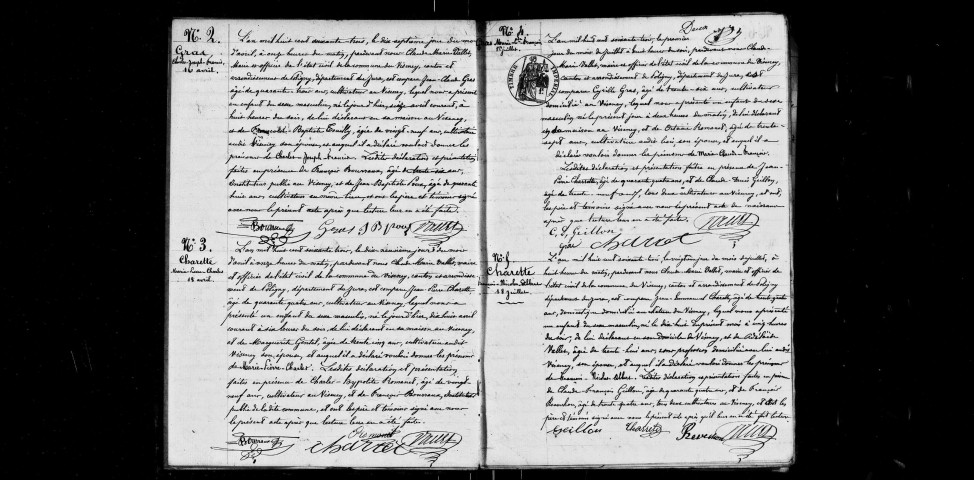 N° 2.
Gras
Charles Joseph Francis
16 avril.
L'an mil huit cent soixante trois, le dix septième jour du mois
d'avril, à onze heures du matin, pardevant nous Claude Marie Vallet,
Maire et officier de l'état civil de la commune du Viseney, canton et
arrondissement de Poligny, département du Jura, est comparu Jean Claude Gras
âgé de quarante trois ans, cultivateur au Viseney, lequel nous a présenté
un enfant du sexe masculin, né le jour d'hier, seize avril courant, à
huit heures du soir, de lui déclarant en sa maison au Viseney,
et de Baptiste âgée de vingt neuf ans, cultivateur
audit Viseney son épouse, et auquel il a déclaré vouloir donner les
prénoms de Charles Joseph Francis. Lesdites déclaration et présentation
faites en présence de François Bouveaux, âgé de trente six ans,
Instituteur public au Viseney, et de Jean Baptiste âgé de quarante
huit ans, cultivateur au même lieu, et ont les père et témoins signé
avec nous le présent acte après que lecture leur en a été faite.
Gras
N° 3.
Charette
Marie Pierre Charles
18 avril.
L'an mil huit cent soixante trois, le dix neuvième jour du mois
d'avril à onze heures du matin, pardevant nous Claude Marie Vallet, maire
et officier de l'état civil de la commune du Viseney, canton et arrondissement
de Poligny, département du Jura, est comparu Jean Pierre Charette
âgé de quarante quatre ans, cultivateur au Viseney, lequel nous a
présenté un enfant du sexe masculin, né le jour d'hier, dix huit avril
courant à six heures du soir, de lui déclarant en sa maison au Viseney,
et de Marguerite âgée de trente cinq ans, cultivateur audit
Viseney son épouse, et auquel il a déclaré vouloir donner les prénoms
de Marie Pierre Charles. Lesdites déclaration et présentation
faites en présence de Charles Hyppolite âgé de vingt
neuf ans, cultivateur au Viseney, et de François Bouveaux, instituteur
public de la dite commune, et ont les père et témoins signé avec nous
le présent acte après que lecture leur en a été faite.
Charret
Deux
N° 4.
Gras
1er juillet.
TIMBRE IMPÉRIAL
L'an mil huit cent soixante trois, le premier
jour du mois de juillet à huit heures du soir, pardevant nous Claude
Marie Vallet, maire et officier de l'état civil de la commune du Viseney,
canton et arrondissement de Poligny, département du Jura, est
comparu Cyrille Gras, âgé de trente six ans, cultivateur
domicilié au Viseney, lequel nous a présenté un enfant du sexe
masculin, né le présent jour à deux heures du matin, de lui déclarant
en sa maison au Viseney, et de âgée de trente
sept ans, cultivateur audit lieu, son épouse, et auquel il a
déclaré vouloir donner les prénoms de Marie Claude François.
Lesdites déclaration et présentation faites en présence de Jean
Pierre Charrette, âgé de quarante quatre ans, et de Claude Guillon,
âgé de trente neuf ans, tous deux cultivateurs au Viseney, et ont
les père et témoins signé avec nous le présent acte de naissance
après que lecture leur en a été faite.
Guillon
Gras Charret
N° 5
Charette
18 juillet.
L'an mil huit cent soixante trois, le vingtième jour du mois de juillet, à
huit heures du matin, pardevant nous Claude Marie Vallet, maire et officier de
l'état civil de la commune du Viseney, canton et arrondissement de Poligny
département du Jura, est comparu Charette, âgé de trente quatre
ans, domicilié au Viseney, lequel nous a présenté
un enfant du sexe masculin, né le dix huit du présent mois à onze heures
du soir, de lui déclarant en son domicile du Viseney, et de
Vallet, âgée de trente huit ans, sans profession domiciliée audit
Viseney, son épouse, et auquel il a déclaré vouloir donner les prénoms
de Lesdites déclaration et présentation faites en présence
de Claude François Guillon, âgé de quarante ans, et de François
âgé de trente quatre ans, tous deux cultivateurs au Viseney, et ont les
père et témoins signé avec nous le présent acte après qu'il leur en a été fait lecture
Guillon